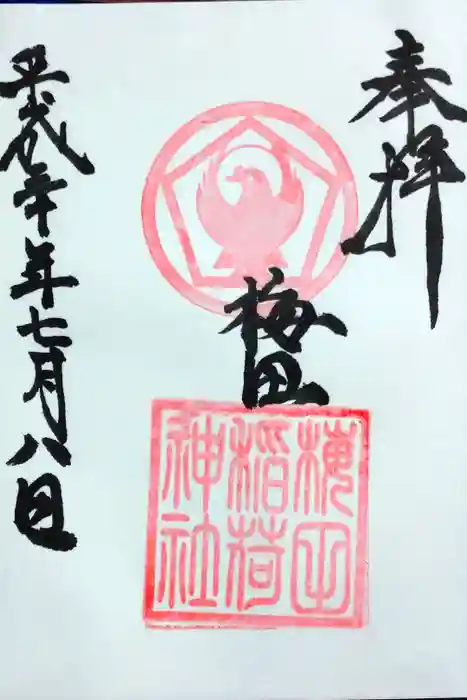 奉拝
梅田
平成三十年七月八日
梅田
稲荷
神社